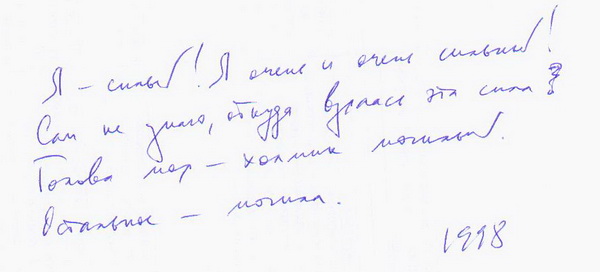 Я – сильный! Я очень и очень сильный!
Сам не знаю, откуда взялась эта сила?
Голова моя – холмик могильный.
Остальное – могила.
1998